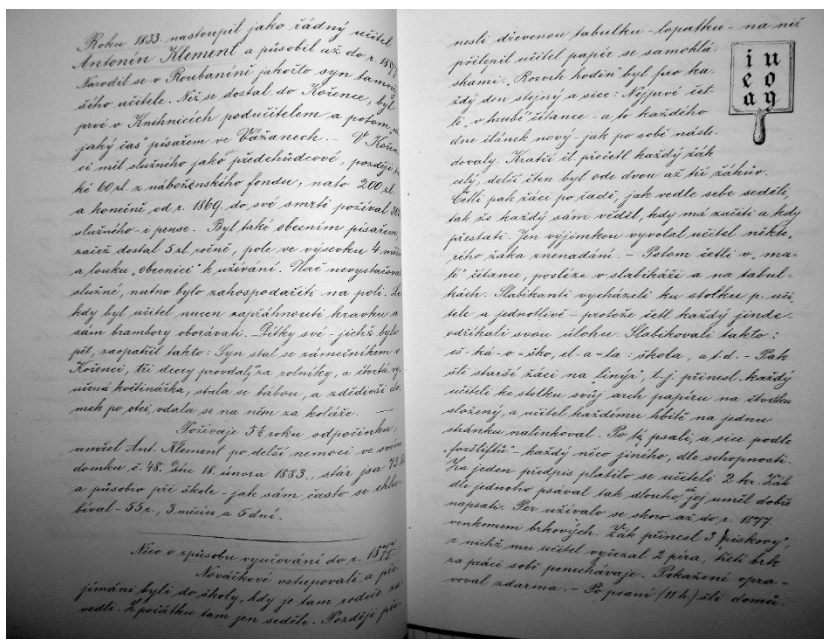 Roku 1833 nastoupil jako řádný učitel
Antonín Klement a působil až do r.
Narodil se v Roubaníně jakožto syn tamněj-
šího učitele. Než se dostal do Kořence, byl
prvé v Knihnicích podučitelem a potom
jaký čas písařem ve Vážanech. - V Koře-
nci měl služného jako předchůdcové, později
ké 60 zl. z náboženského fondu, nato 200 zl.
a konečně od r. 1869 do své smrti požíval
služného - i pense. Byl také obecním písařem
začež dostal 5 zl. ročně, pole ve výsevku 4
a louku „obecnici" k užívání. Nač nevystačova
služné, nutno bylo zahospodařiti na poli.
kdy byl učitel nucen zapřáhnouti kravku a
sám brambory oborávati. Dítky své - jichž bylo
pět, zaopatřil takto: Syn stal se zámečníkem v
Kořenci, tři dcery provdaly za rolníky, a čtvrtá vy-
učená květinářka, stala se bábou, a zdědivši do-
mek po otci, vdala se na něm za koláře. -
Požívaje 5½ roku odpočinku,
umřel Ant. Klement po delší nemoci ve svém
domku č. 48. dne 18. února 1883., stár jsa 75
a působiv při škole - jak sám často se chlu-
bíval - 55 r., 3 měsíce a 5 dní.
Něco o způsobu vyučování do r.
Nováčkové vstupovali a při-
jímáni byli do školy, kdy je tam rodiče za-
vedli. Z počátku tam jen seděli. Později při-
nesli dřevenou tabulku - lopatku - na niž
přilepil učitel papír se samohlá-
skami. „Rozvrh hodin" byl pro ka-
ždý den stejný a sice: Nejprvé čet-
li „v hrubé" čítance - a to každého
dne článek nový - jak po sobě násle-
dovaly. Kratší čl. přečetl každý žák
celý, delší čten byl ode dvou až tří žákův.
Četli pak žáci po řadě, jak vedle sebe seděli,
tak že každý sám věděl, kdy má začíti a kdy
přestati. Jen výjimkou vyvolal učitel někte-
rého žáka znenadání. - Potom četli v „ma-
lé" čítance, posléze v slabikáři a na tabul-
kách. Slabikanti vycházeli ku stolku p. uči-
tele a jednotlivě - protože četl každý jinde -
odříkali svou úlohu. Slabikovali takto:
eš-ká-o-ško, el-a-la: škola, a.t.d. - Pak
šli starší žáci na „linyr", t.j. přinesl každý
učiteli ke stolku svůj arch papíru na čtvrtku
složený, a učitel každému hbitě na jednu
stránku nalinkoval. Po té psali, a sice podle
„foršriftů" - každý něco jiného, dle schopnosti.
Za jeden předpis platilo se učiteli 2 kr. Žák
dle jednoho psával tak dlouho, až jej uměl dobře
napsati. Per užívalo se skoro až do r. 1877
venkoncem brkových. Žák přinesl 3
z nichž mu učitel vyřezal 2 péra, třetí brk
za práci sobě ponechávaje. Pokažení opra-
voval zdarma. - Po psaní (11 h.) šli domů.
i u
e o
a y